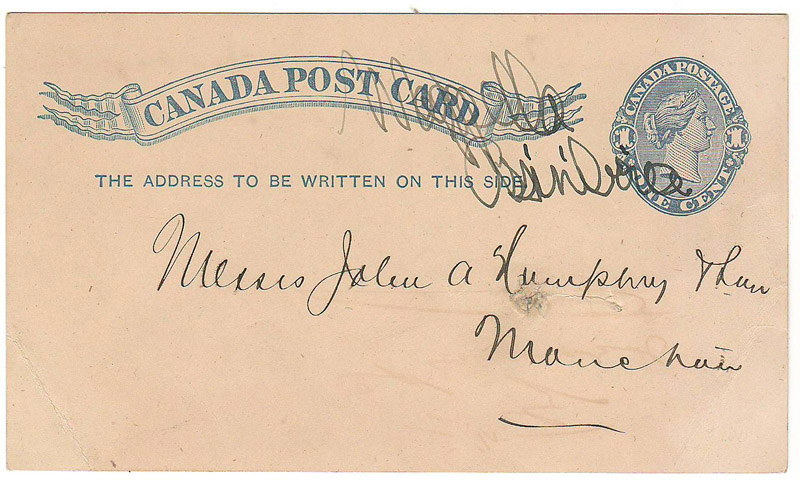 CANADA POST CARD
CANADA POSTAGE
ONE CENT
THE ADDRESS TO BE WRITTEN ON THIS SIDE.
Messrs John A Humphrey & Son
Moncton